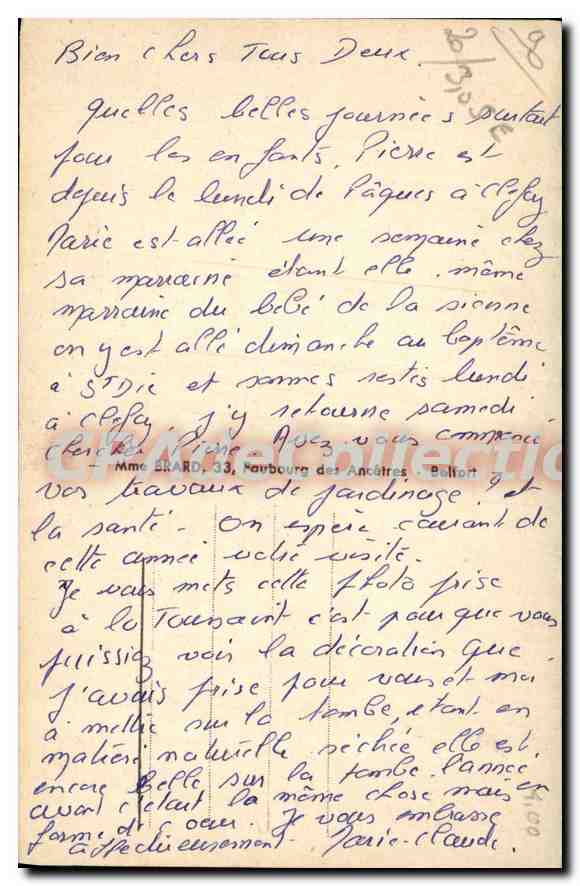 Bien chers Tous Deux.
quelles belles journées surtout
pour les enfants, Pierre est
depuis le lundi de Pâques à Clefcy
Marie est allée une semaine chez
sa marraine étant elle même
marraine du bébé de la sienne
on y est allé dimanche au baptême
à St Dié et sommes restés lundi
à Clefcy. j'y retourne samedi
chercher Pierre Avez vous commencé
Mme BRARD, 33, Faubourg des Ancêtres - Belfort
vos travaux de jardinage ? et
la santé - On espère courant de
cette année votre visite.
Je vous mets cette photo prise
à la Toussaint c'est pour que vous
puissiez voir la décoration que
j'avais prise pour vous et moi
à mettre sur la tombe, étant en
matière naturelle séchée elle est
encore belle sur la tombe. l'année
avant c'était la même chose mais en
forme de coeur. Je vous embrasse
affectueusement. Marie-Claude.
CPA de Collection
4,00